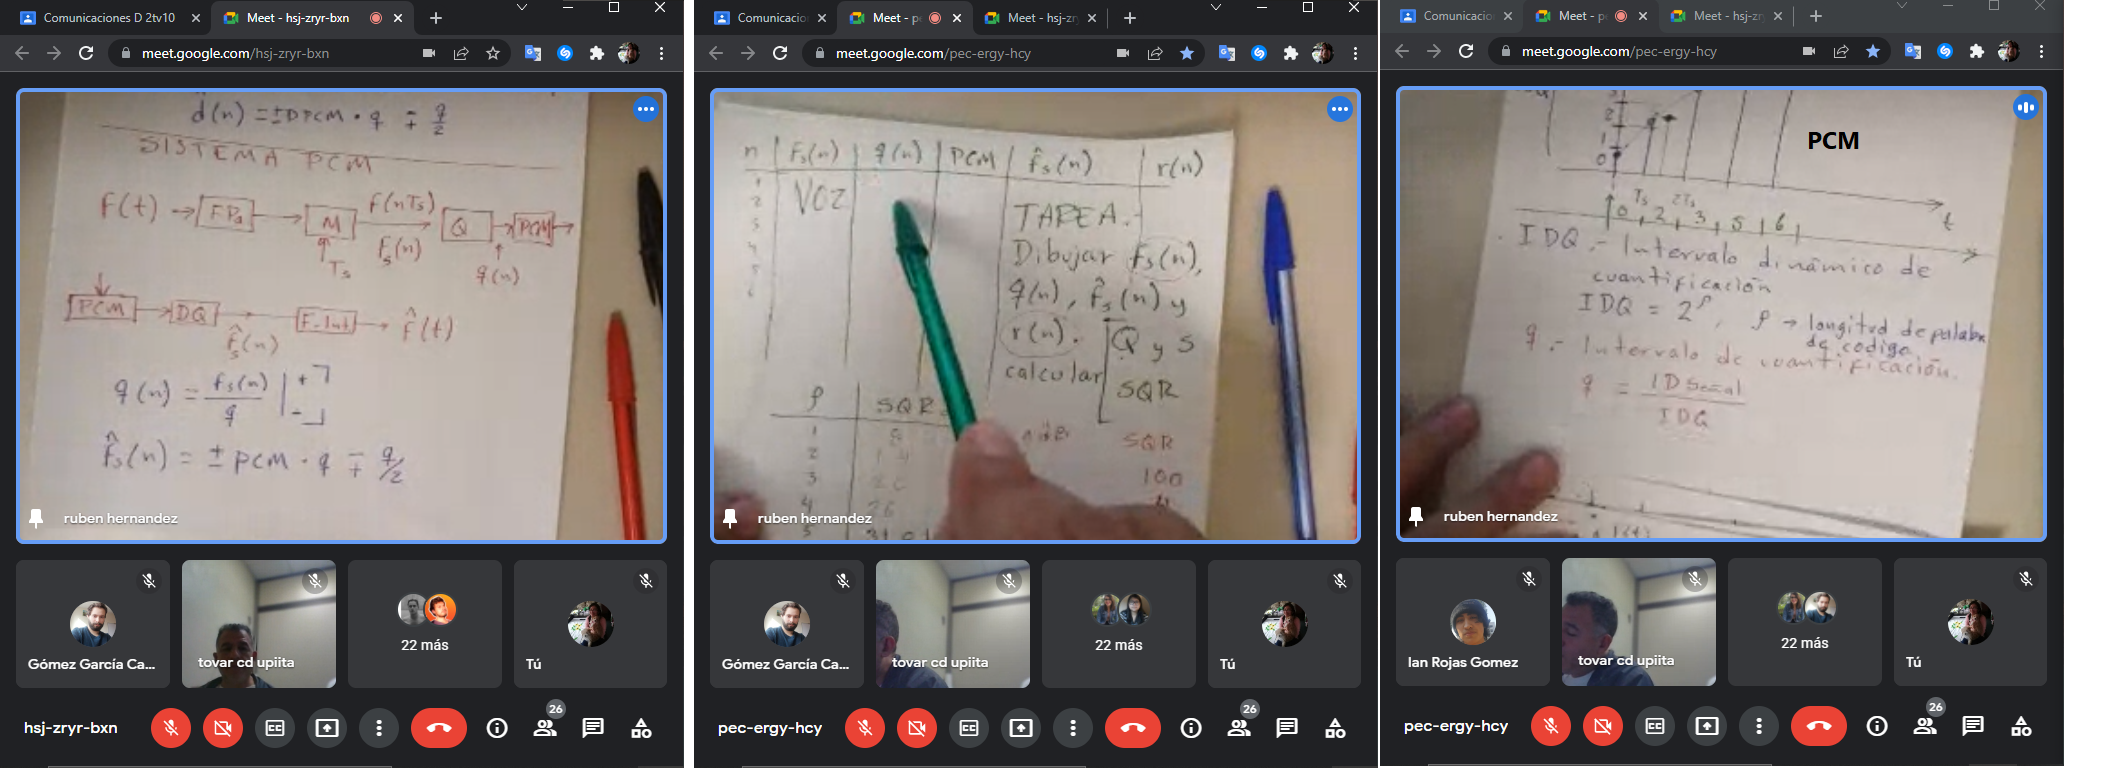 Comunicaciones D 2tv10
Meet - hsj-zryr-bxn
meet.google.com/hsj-zryr-bxn
d̂(n) = ± DPCM · q ∓ q/2
SISTEMA PCM
F(t) → FPa → M F(nTs) Q → PCM →
Ts fs(n) q(n)
PCM → DQ → F. Int → f̂(t)
f̂s(n)
q(n) = fs(n)/q | + ⌉ - ⌋
f̂s(n) = ± PCM · q ∓ q/2
ruben hernandez
Gómez García Ca...
tovar cd upiita
22 más
Tú
hsj-zryr-bxn
26
Comunicacio
Meet - p
Meet - hsj-zr
meet.google.com/pec-ergy-hcy
n fs(n) q(n) PCM f̂s(n) r(n)
1
2
3
4
5
6
VOZ
TAREA.-
Dibujar fs(n),
q(n), f̂s(n) y
r(n).
calcular
Q y S
SQR
ρ SQR
1 8
2 14
3 20
4 26
5
SQR
100
ruben hernandez
Gómez García Ca...
tovar cd upiita
22 más
Tú
pec-ergy-hcy
26
Comunicacio
Meet - p
Meet - hsj-zr
meet.google.com/pec-ergy-hcy
PCM
2
1
0
Ts 2Ts
0 2 3 5 6 t
IDQ.- Intervalo dinámico de
cuantificación
IDQ = 2^ρ, ρ → longitud de palabra
de codigo
q.- Intervalo de cuantificación.
q = IDSeñal / IDQ
ruben hernandez
Ian Rojas Gomez
tovar cd upiita
22 más
Tú
pec-ergy-hcy
26